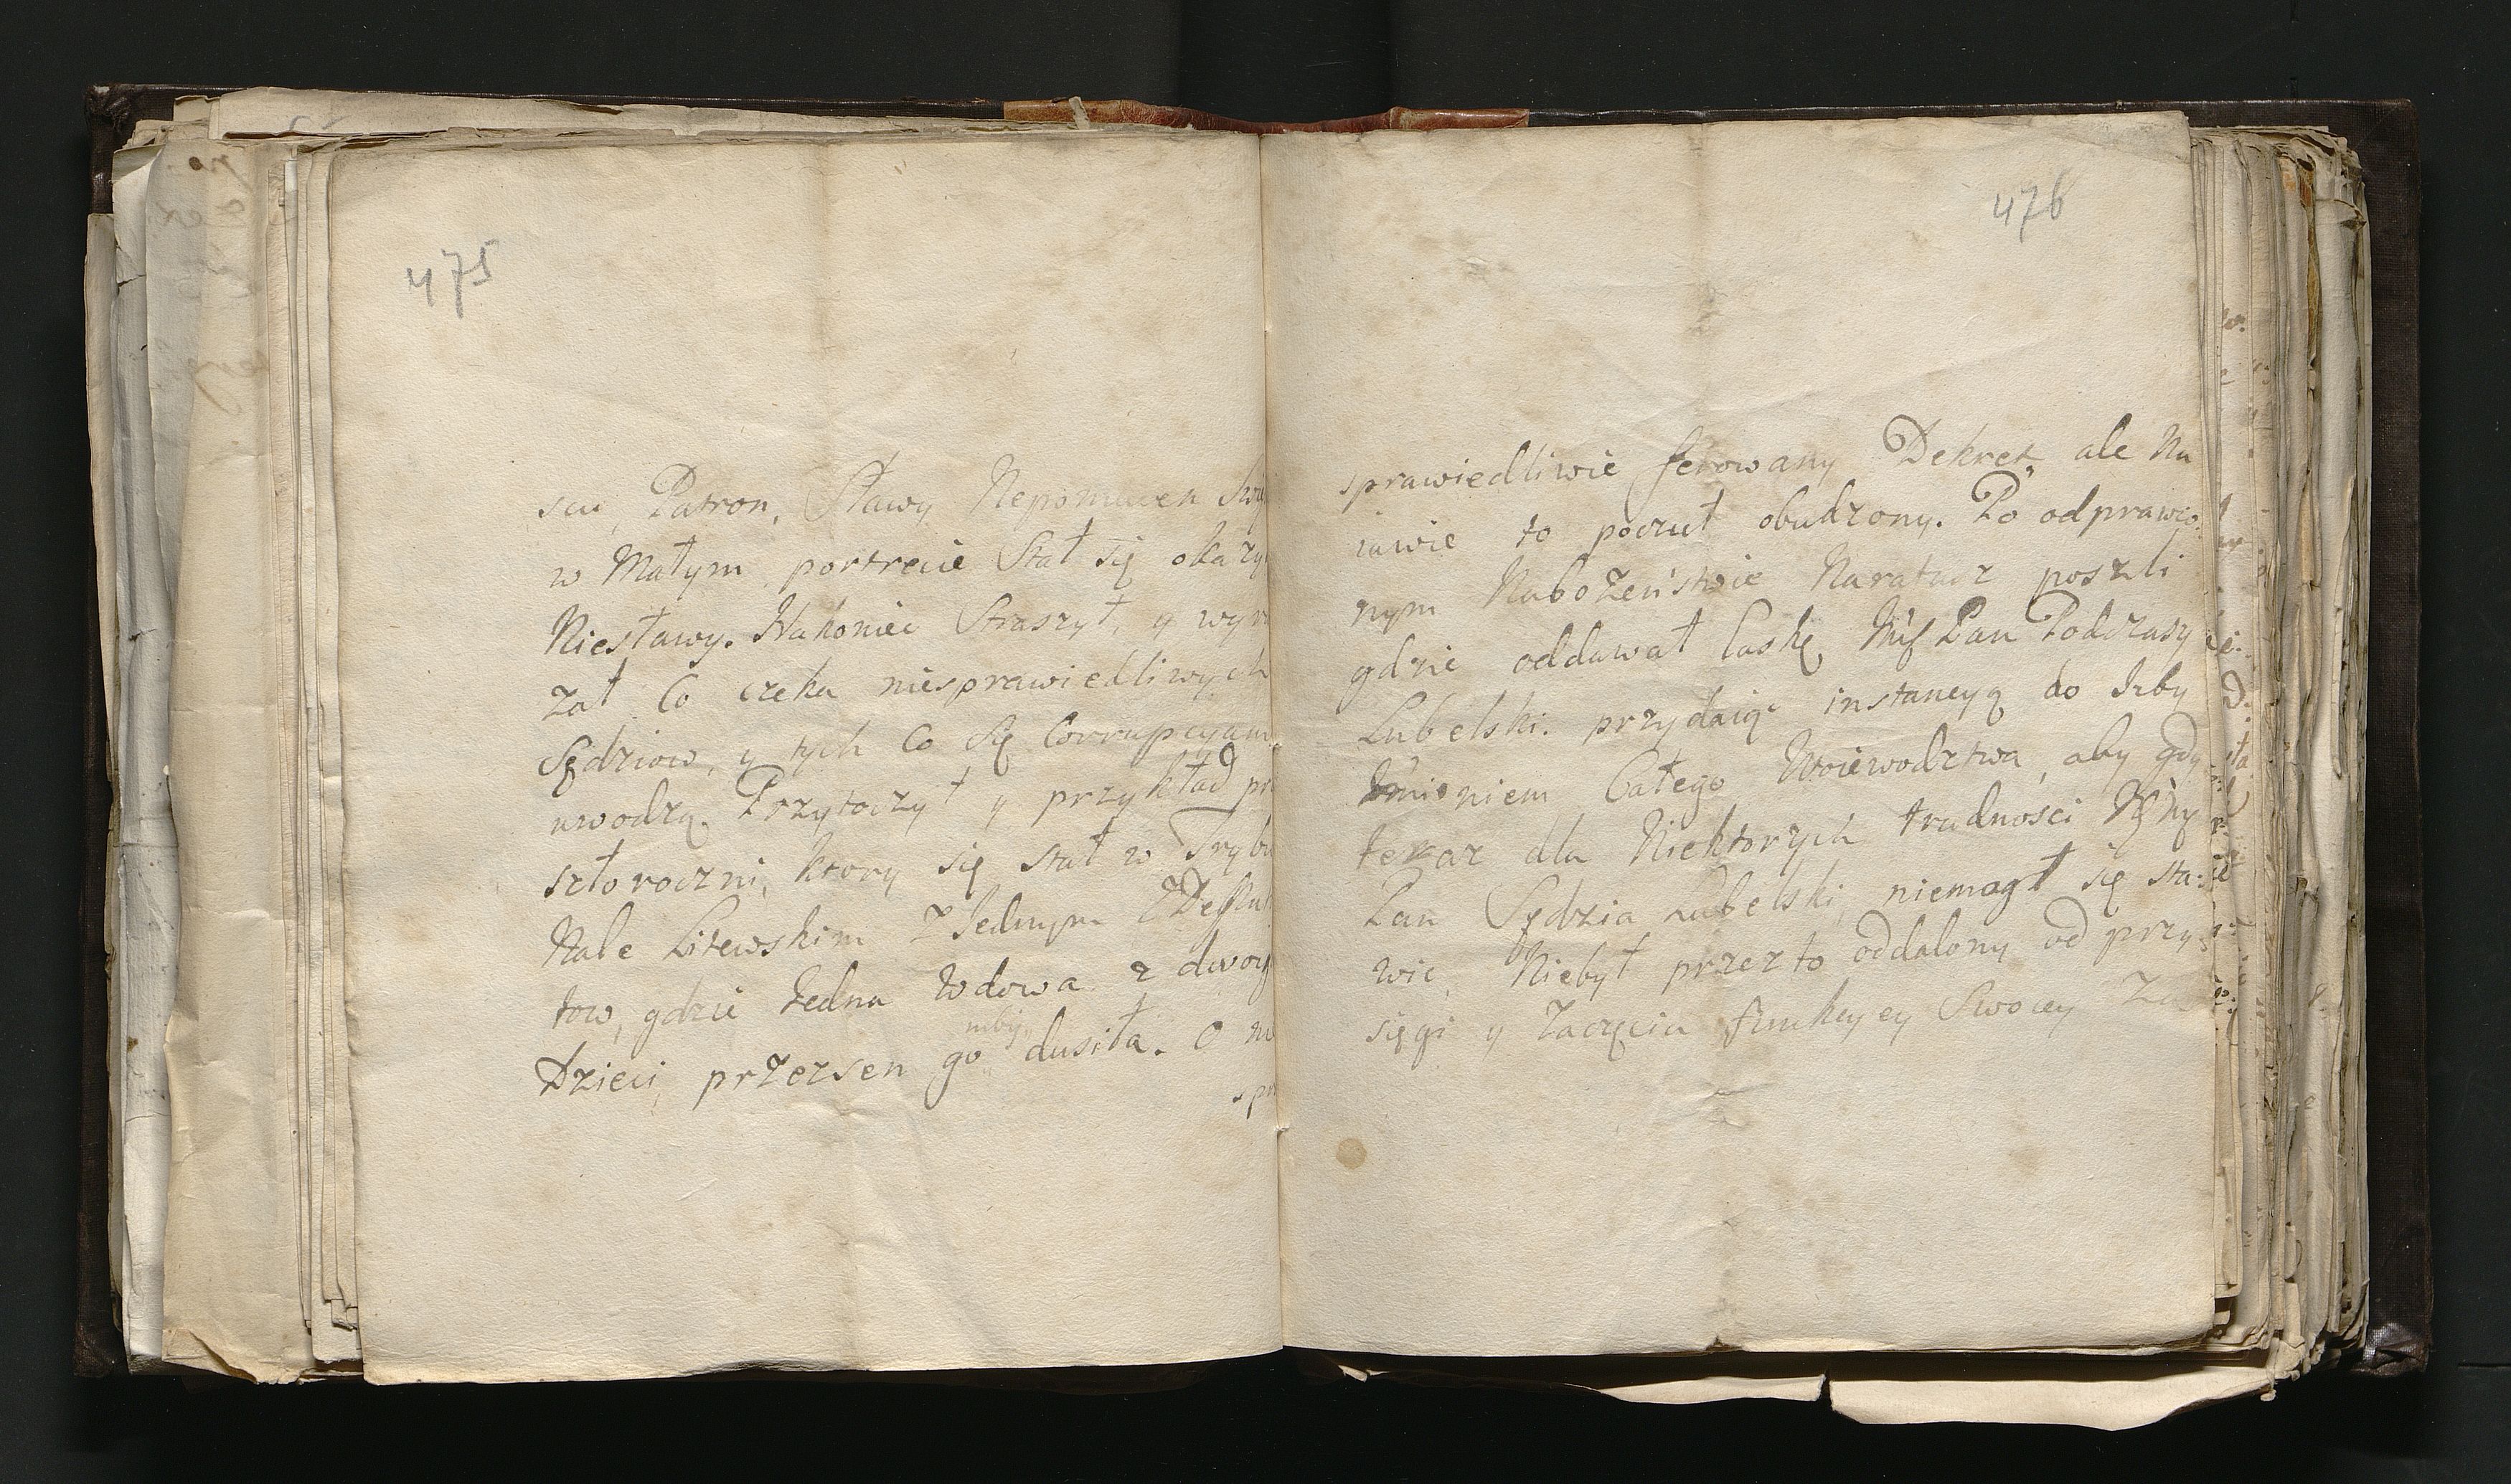 475
scu, Patron, Sławy Nepomucen Świę
w Małym portrecie Stał się okazy
Niesławy. Nakoniec Straszył, y wyra
zał Co czeka niesprawiedliwych
Sędziow, y tych Co się Corrupcyam
uwodzą. Przytoczył y przykład prz
szłoroczni, ktory się stał w Trybu
Nale Litewskim Z Jednym Z Deput
tow, gdzie Jedna Wdowa z dwoyg
niby
Dzieci, przezsen go dusiła. O ni
spr
476
sprawiedliwie ferowany Dekret, ale Na
iawie to poczuł obudzony. Po odprawio.
nym Nabożeństwie Naratusz poszli
gdzie oddawał laskę Pan Podczaszy
Lubelski. przydaiąc instancyą do Izby
Imieniem Całego Woiewodztwa, aby gdy
teraz dla Niektorych trudności
Pan Sędzia Lubelski, niemogł się sta:
wić, Niebył przezto oddalony od przy:
sięgi y Zaczęcia funkcyey Swoiey